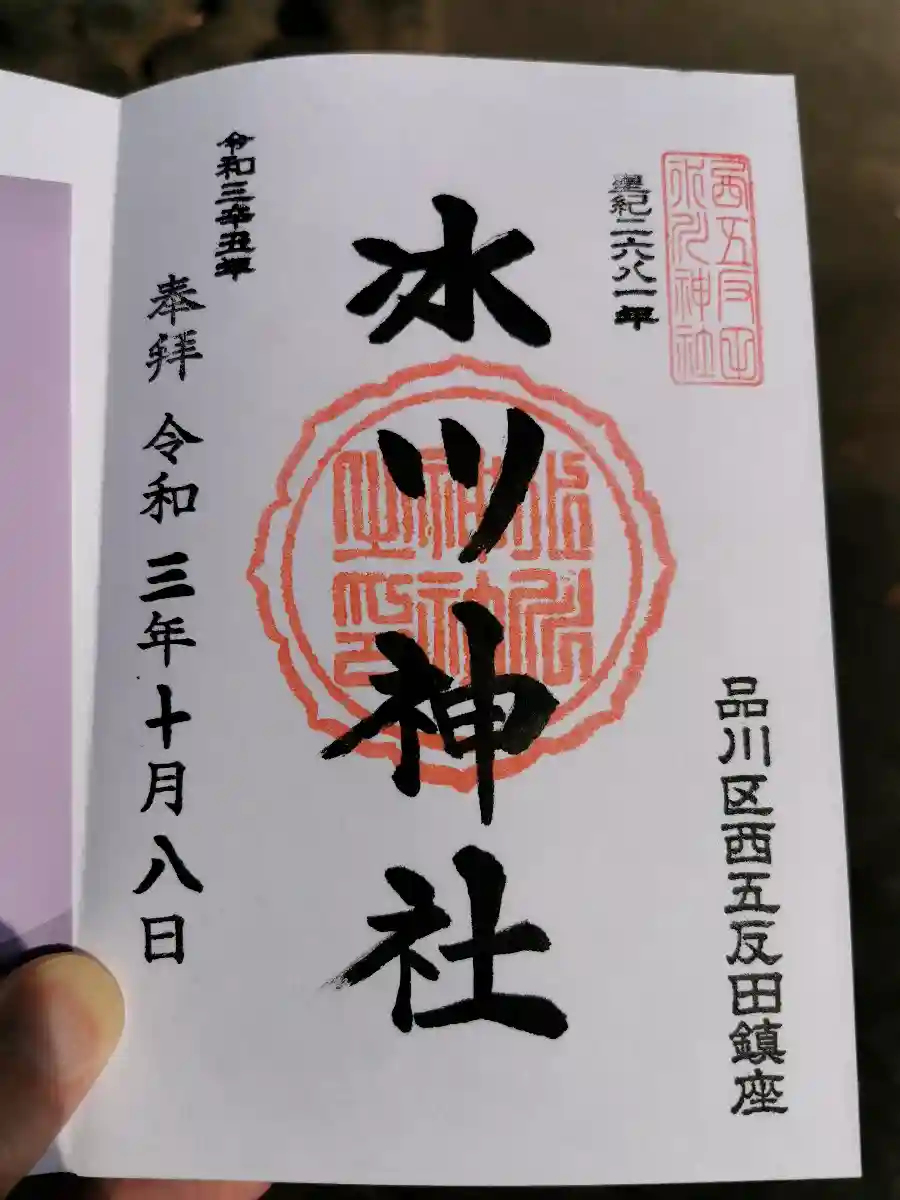 西五反田
氷川神社
皇紀二六八一年
品川区西五反田鎮座
氷川神社
氷川
神社
之印
令和三辛丑年
奉拝 令和三年十月八日